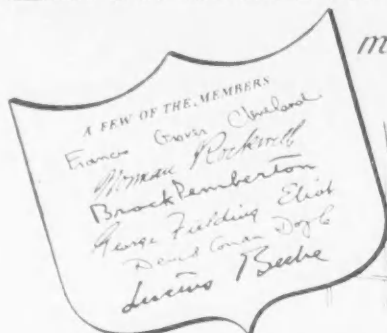 m
A FEW OF THE MEMBERS
Francis Grover Cleveland
Norman Rockwell
Brock Pemberton
George Fielding Eliot
Denis Conan Doyle
Lucius Beebe